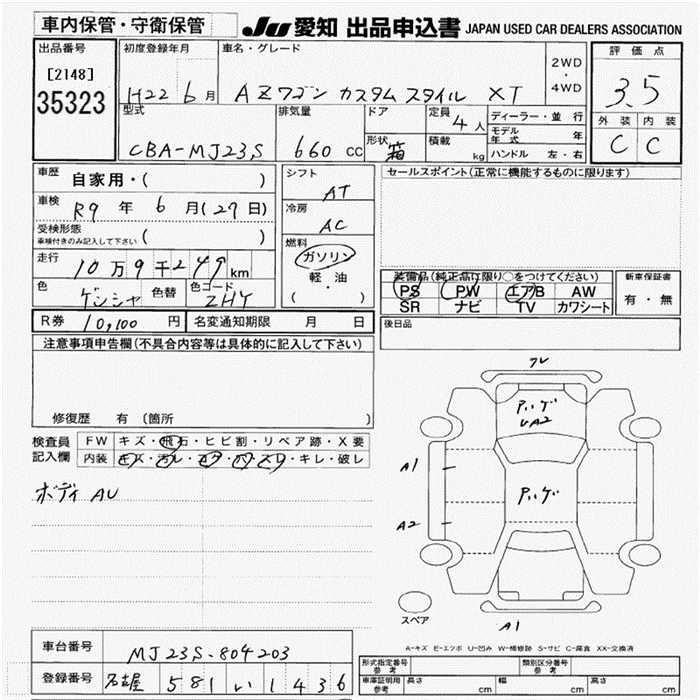 車内保管・守衛保管 JU 愛知 出品申込書 JAPAN USED CAR DEALERS ASSOCIATION
出品番号 初度登録年月 車名・グレード 2WD・4WD 評価点
[2148] 35323 H22 6月 AZワゴン カスタムスタイル XT 3.5
型式 排気量 ドア 定員 4人 ディーラー・並行 外装 内装
CBA-MJ23S 660CC 形状 箱 積載 kg モデル年式 年 C C
ハンドル 左・右
車歴 自家用・( ) シフト AT セールスポイント(正常に機能するものに限ります)
車検 R9年 6月(27日) 冷房 AC
受検形態 ( )
車検付きのみ記入して下さい
燃料 ガソリン 軽・油 ( )
走行 10万9千249km
装備品(純正品に限り○をつけてください) 新車保証書
PS PW エアB AW 有・無
SR ナビ TV カワシート
色 ゲンシャ 色替 色コード ZHY
後日品
R券 10,100円 名変通知期限 月 日
注意事項申告欄(不具合内容等は具体的に記入して下さい)
修復歴 有 (箇所 )
検査員記入欄 FW キズ・飛石・ヒビ割・リペア跡・X要
内装 キズ・汚レ・コゲ・穴・スレ・キレ・破レ
ボディ AU
ワレ
ハゲ
UA2
A1
ハゲ
A2
スペア
A1
A-キズ E-エクボ U-凹み W-補修跡 S-サビ C-腐食 XX-交換済
車台番号 MJ23S-804203
登録番号 名古屋 581 い 1436
形式指定番号 参考 類別区分番号 参考
車庫証明用 参考 長さ cm 幅 cm 高さ cm